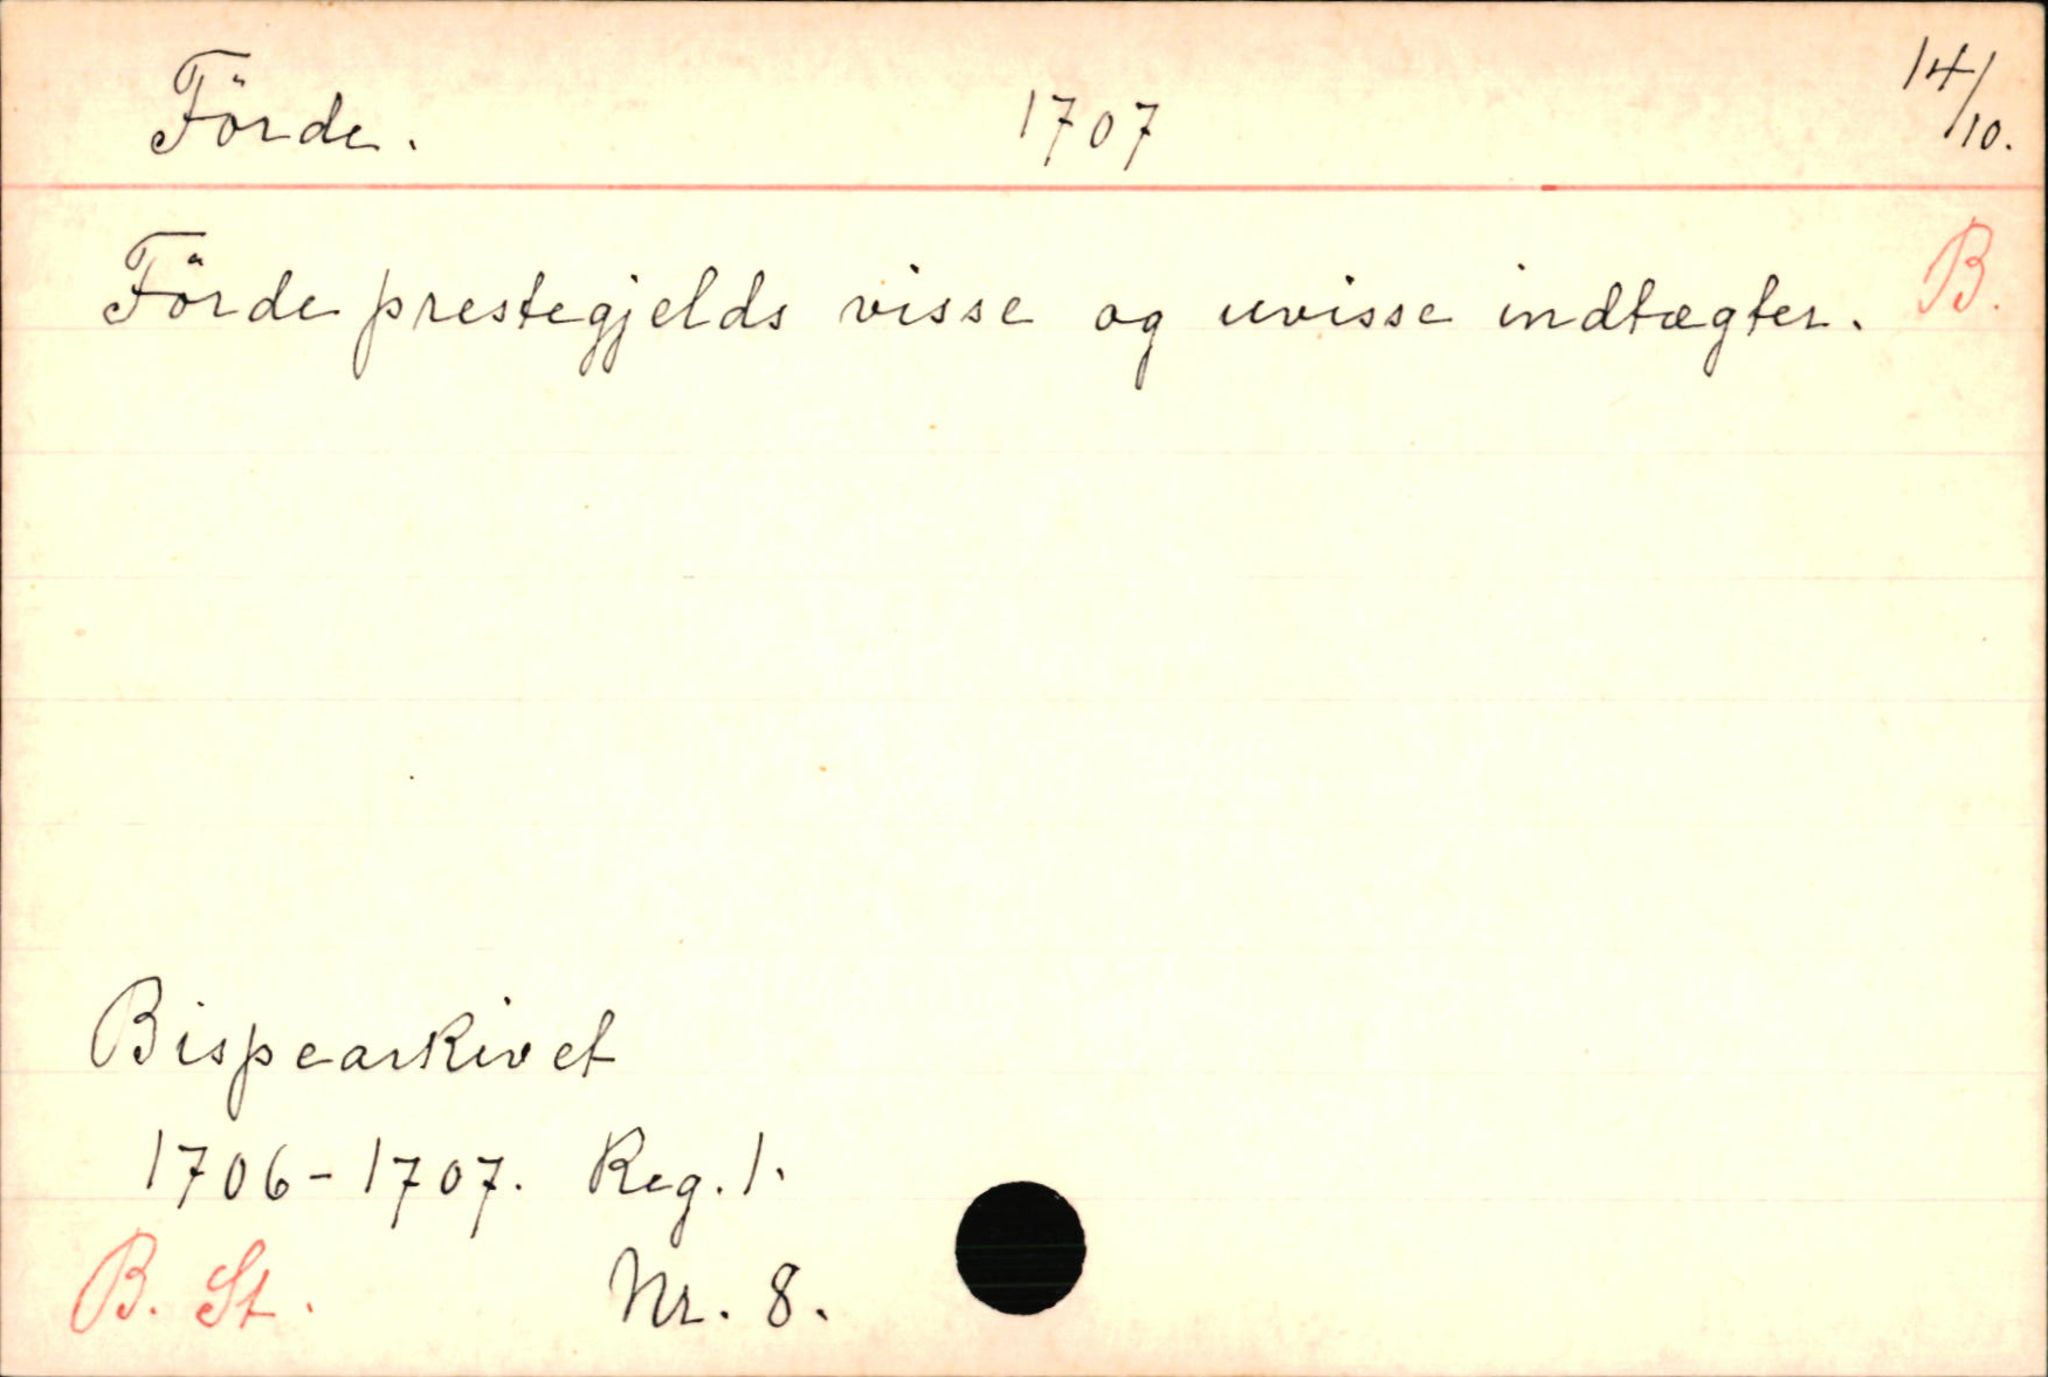 Förde. 1707 14/10.
Förde prestegjelds visse og uvisse indtægter. B.
Bispearkivet
1706-1707. Reg. 1.
B. St. Nr. 8.